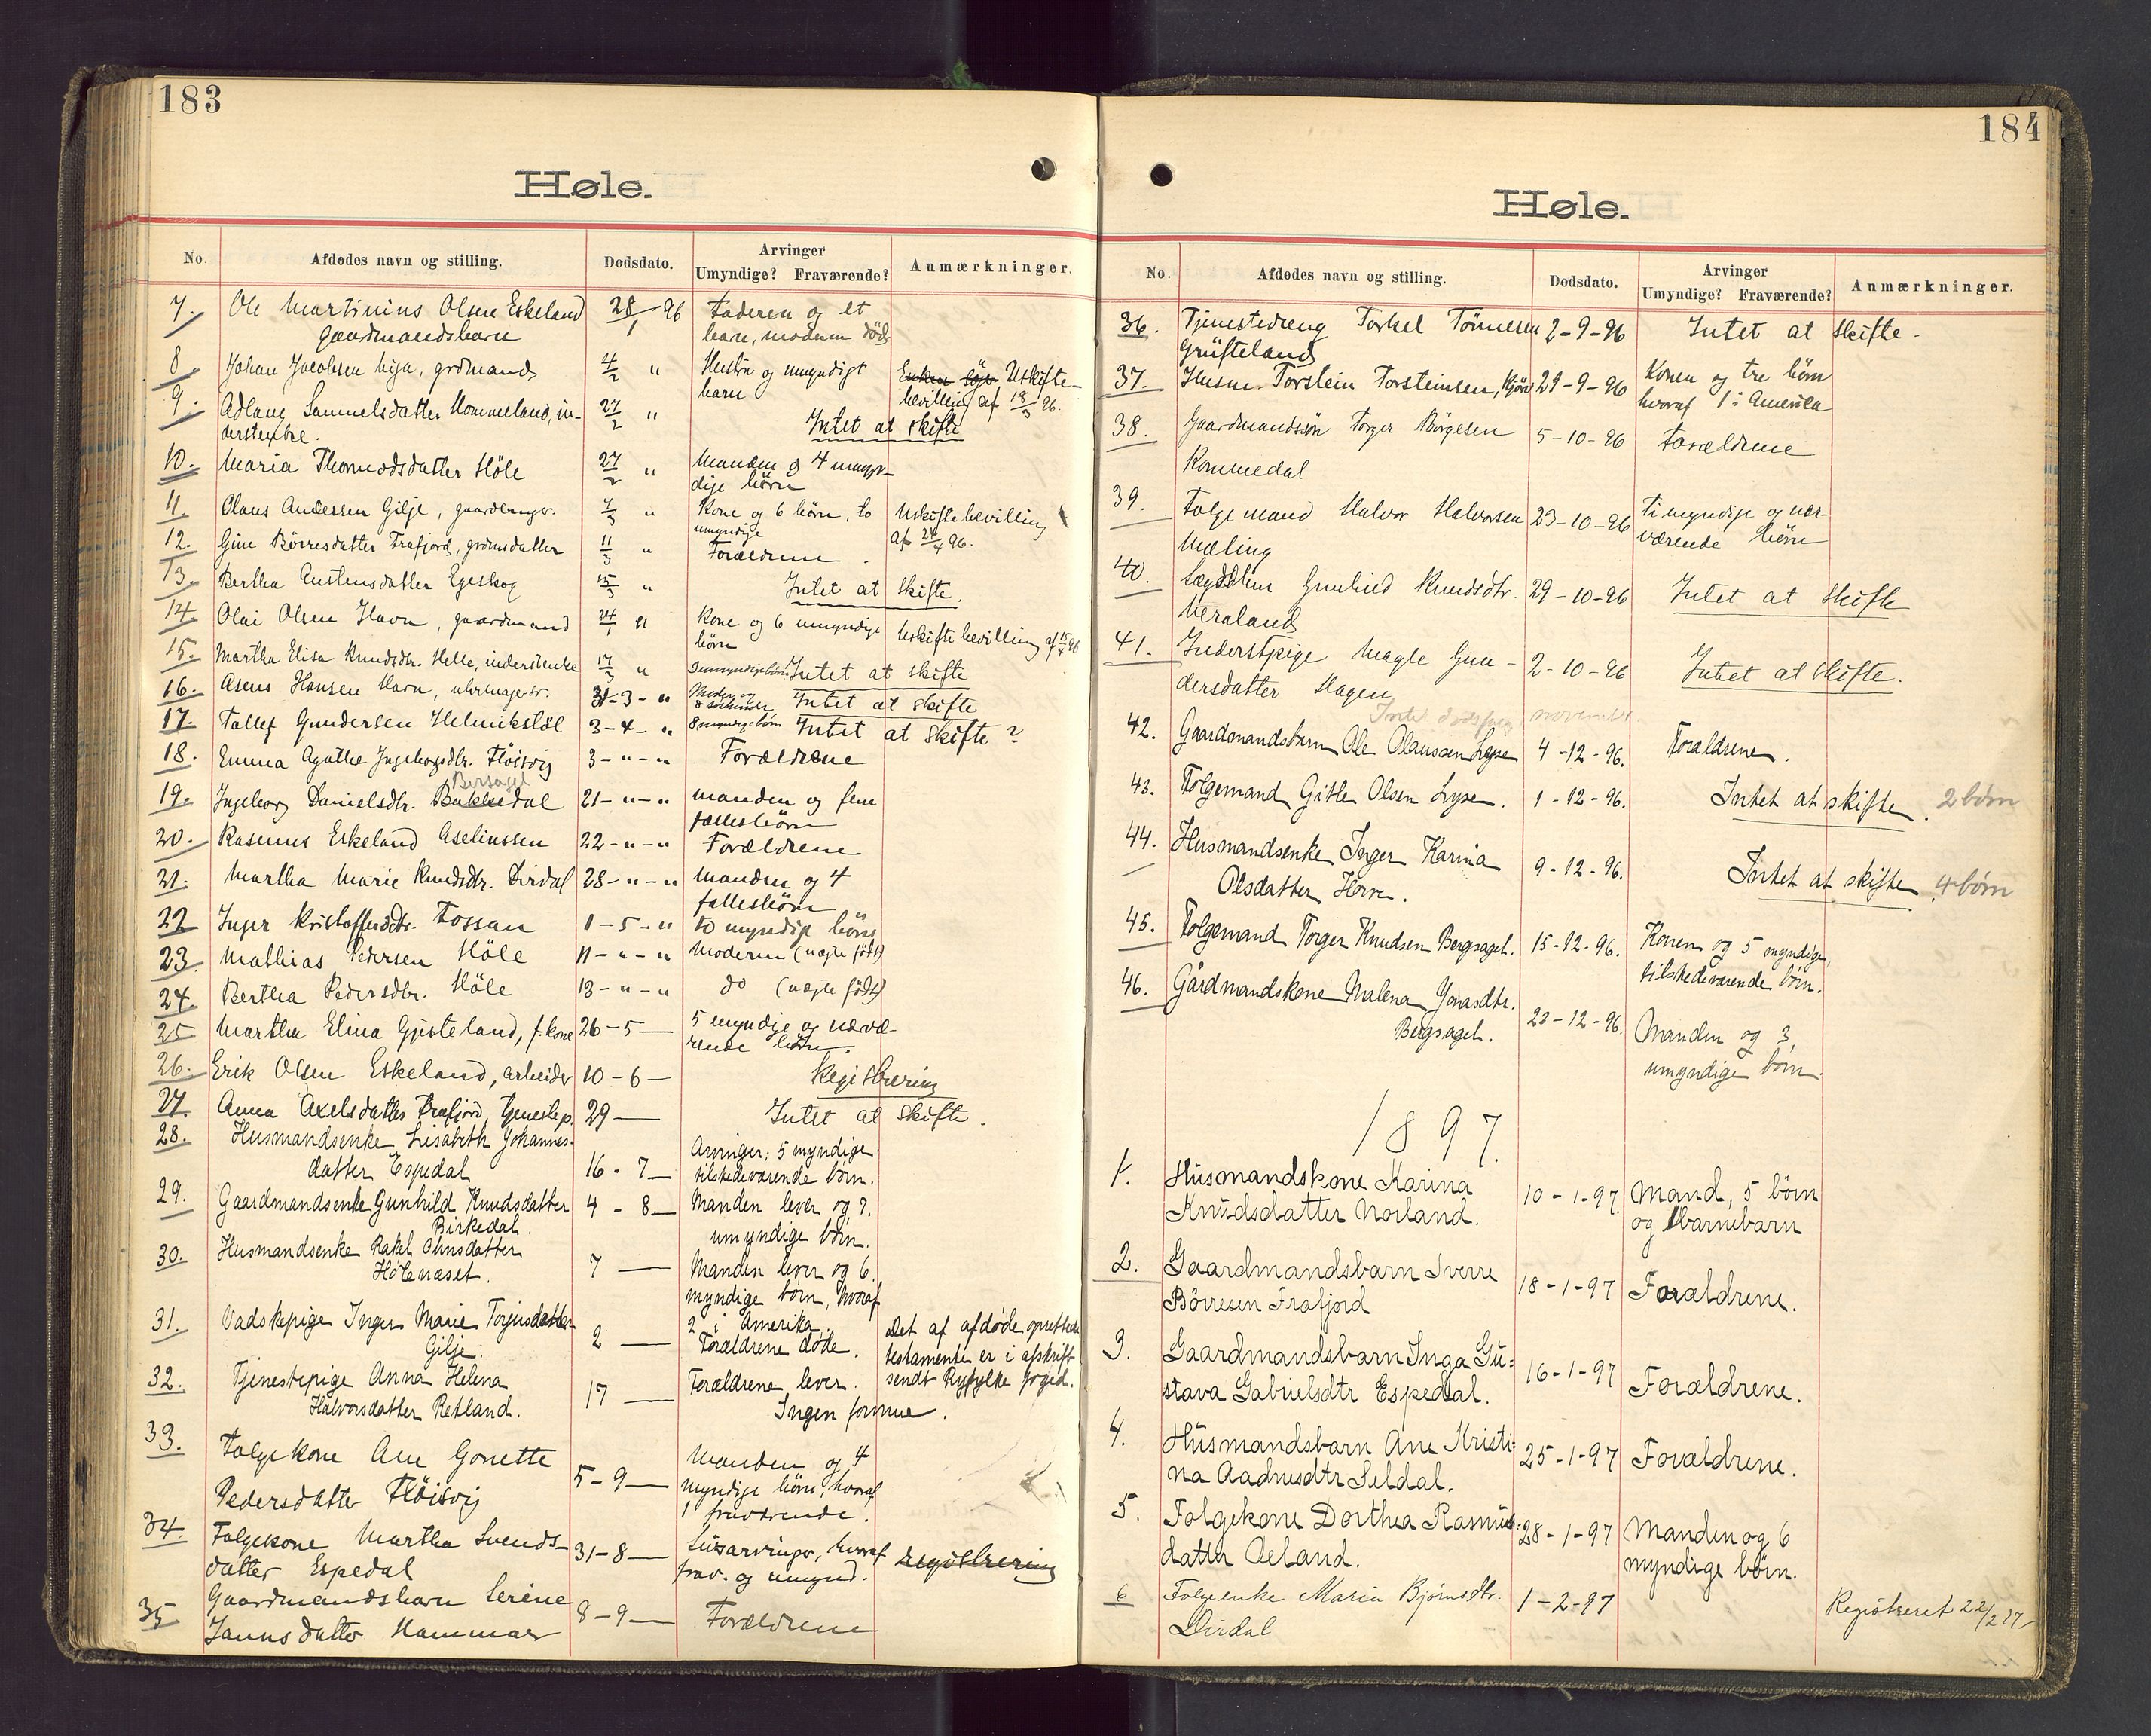 183
Høle.
No. Afdødes navn og stilling. Dødsdato. Arvinger Umyndige? Fraværende? Anmærkninger.
7. Ole Martinius Olsen Eskeland 28/1 96 Faderen og et
gaardmandsbarn barn, moderen død
8. Johan Jacobsen Liga, grdmand 4/2 " Hustru og umyndigt Uskifte-
barn bevilling af 18/3 96.
9. Adlaug Samuelsdatter Hommeland, in- 27/2 " Intet at skifte
derstenke.
10. Maria Thormodsdatter Höle 27/2 " Manden og 4 umyn-
dige börn
11. Claus Andersen Gilje, gaardbruger. 7/3 " Kone og 6 börn, to Uskiftebevilling
umyndige af 24/4 96.
12. Gine Börresdatter Frafjord, grdmsdatter 11/3 " Forældrene.
13. Bertha Austensdatter Egeskog 15/3 " Intet at skifte.
14. Olai Olsen Havn, gaardmand 24/1 " Kone og 6 umyndige Uskiftebevilling af 15/4 96
börn
15. Martha Elisa Knudsdtr. Helle, inderstenke 17/3 " Intet at skifte
16. Asens Hansen Havn, uhrmagersv. 31-3-" Moder og Intet at skifte
17. Tallef Gundersen Helmikstöl 3-4-" Intet at skifte?
18. Emma Agathe Ingeborgsdtr. Flöisvig 3-"-" Forældrene
Bersagel
19. Ingeborg Danielsdtr. 21-"-" manden og fem
fællesbörn
20. Rasmus Eskeland Aselinssen 22-"-" Forældrene
21. Martha Marie Knudsdtr. Dirdal 28-"-" Manden og 4
fællesbörn
22 Inger Kristoffersdtr. Fossan 1-5-" to myndige börn
23. Mathias Pedersen Höle 11-"-" Moderen (uægte födt)
24. Bertha Pedersdtr. Höle 13-"-" do (uægte födt)
25 Martha Elina Gjisteland, f.kone 26-5- 5 myndige og nærvæ-
rende börn.
26. Erik Olsen Eskeland, arbeider 10-6- Registrering
27. Anna Axelsdatter Frafjord, tjenestep. 29- Intet at skifte.
28. Husmandsenke Lisabeth Johannes-
datter Espedal 16-7- Arvinger; 5 myndige
tilstedeværende børn.
29. Gaardmandsenke Gunhild Knudsdatter 4-8- Manden lever og ?.
Birkedal. umyndige børn.
30. Husmandsenke Rakel Ohnsdatter 7- Manden lever og 6.
Hølenæset. myndige børn, hvoraf
2 i Amerika.
31. Vadskepige Inger Marie Torjusdatter 2- Forældrene døde. Det af afdøde oprettede
Gilje. testamente er i afskrift
sendt Ryfylke foged.
32. Tjenestepige Anna Helena 17- Forældrene lever.
Halvorsdatter Retland. Ingen formue.
33. Folgekone Ane Gonette 5-9- Manden og 4
Pedersdatter Flöisvig myndige börn, hvoraf
1 fraværende.
34. Folgekone Martha Svends- 31-8- Livsarvinger, hvoraf Registrering
datter Espedal frav. og umynd.
35 Gaardmandsbarn Serine 8-9- Forældrene
Jannsdatter Hammer
184
Høle.
No. Afdødes navn og stilling. Dødsdato. Arvinger Umyndige? Fraværende? Anmærkninger.
36. Tjenestedreng Torkel Tönnesen 2-9-96 Intet at skifte.
Grüfteland
37. Husm. Torstein Torsteinsen, 29-9-96 Konen og tre börn
hvoraf 1 i Amerika
38. Gaardmandssön Torger Börgesen 5-10-96 Forældrene
Kommedal
39. Folgemand Halvor Halvorsen 23-10-96 Ti myndige og nær-
Mæling værende börn
40. Lægdslem Gunhild Knudsdtr. 29-10-96 Intet at skifte
Veraland
41. Inderstpige Magle Gun- 2-10-96 Intet at skifte.
dersdatter Hagen
Intet dødsfald november
42. Gaardmandsbarn Ole Olaussen Lyse 4-12-96. Forældrene.
43. Folgemand Gitle Olsen Lyse. 1-12-96. Intet at skifte. 2 børn
44. Husmandsenke Inger Karina 9-12-96. Intet at skifte. 4 børn
Olsdatter Horve.
45. Folgemand Torger Knudsen Bergsagel. 15-12-96. Konen og 5 myndige,
tilstedeværende børn.
46. Gårdmandskone Malena Jonasdtr. 23-12-96. Manden og 3,
Bergsagel. umyndige børn.
1897.
1. Husmandskone Karina 10-1-97. Mand, 5 børn
Knudsdatter Norland. og 1 barnebarn
2. Gaardmandsbarn Sverre 18-1-97 Forældrene.
Börresen Frafjord
3. Gaardmandsbarn Inga Gu= 16-1-97 Forældrene.
stava Gabrielsdtr Espedal.
4. Husmandsbarn Ane Kristi= 25-1-97 Forældrene.
na Aadnesdtr Seldal.
5. Folgekone Dorthea Rasmus= 28-1-97 Manden og 6
datter Øeland. myndige börn.
6 Folgeenke Maria Bjørnsdtr. 1-2-97 Registreret 22/2 97
Dirdal